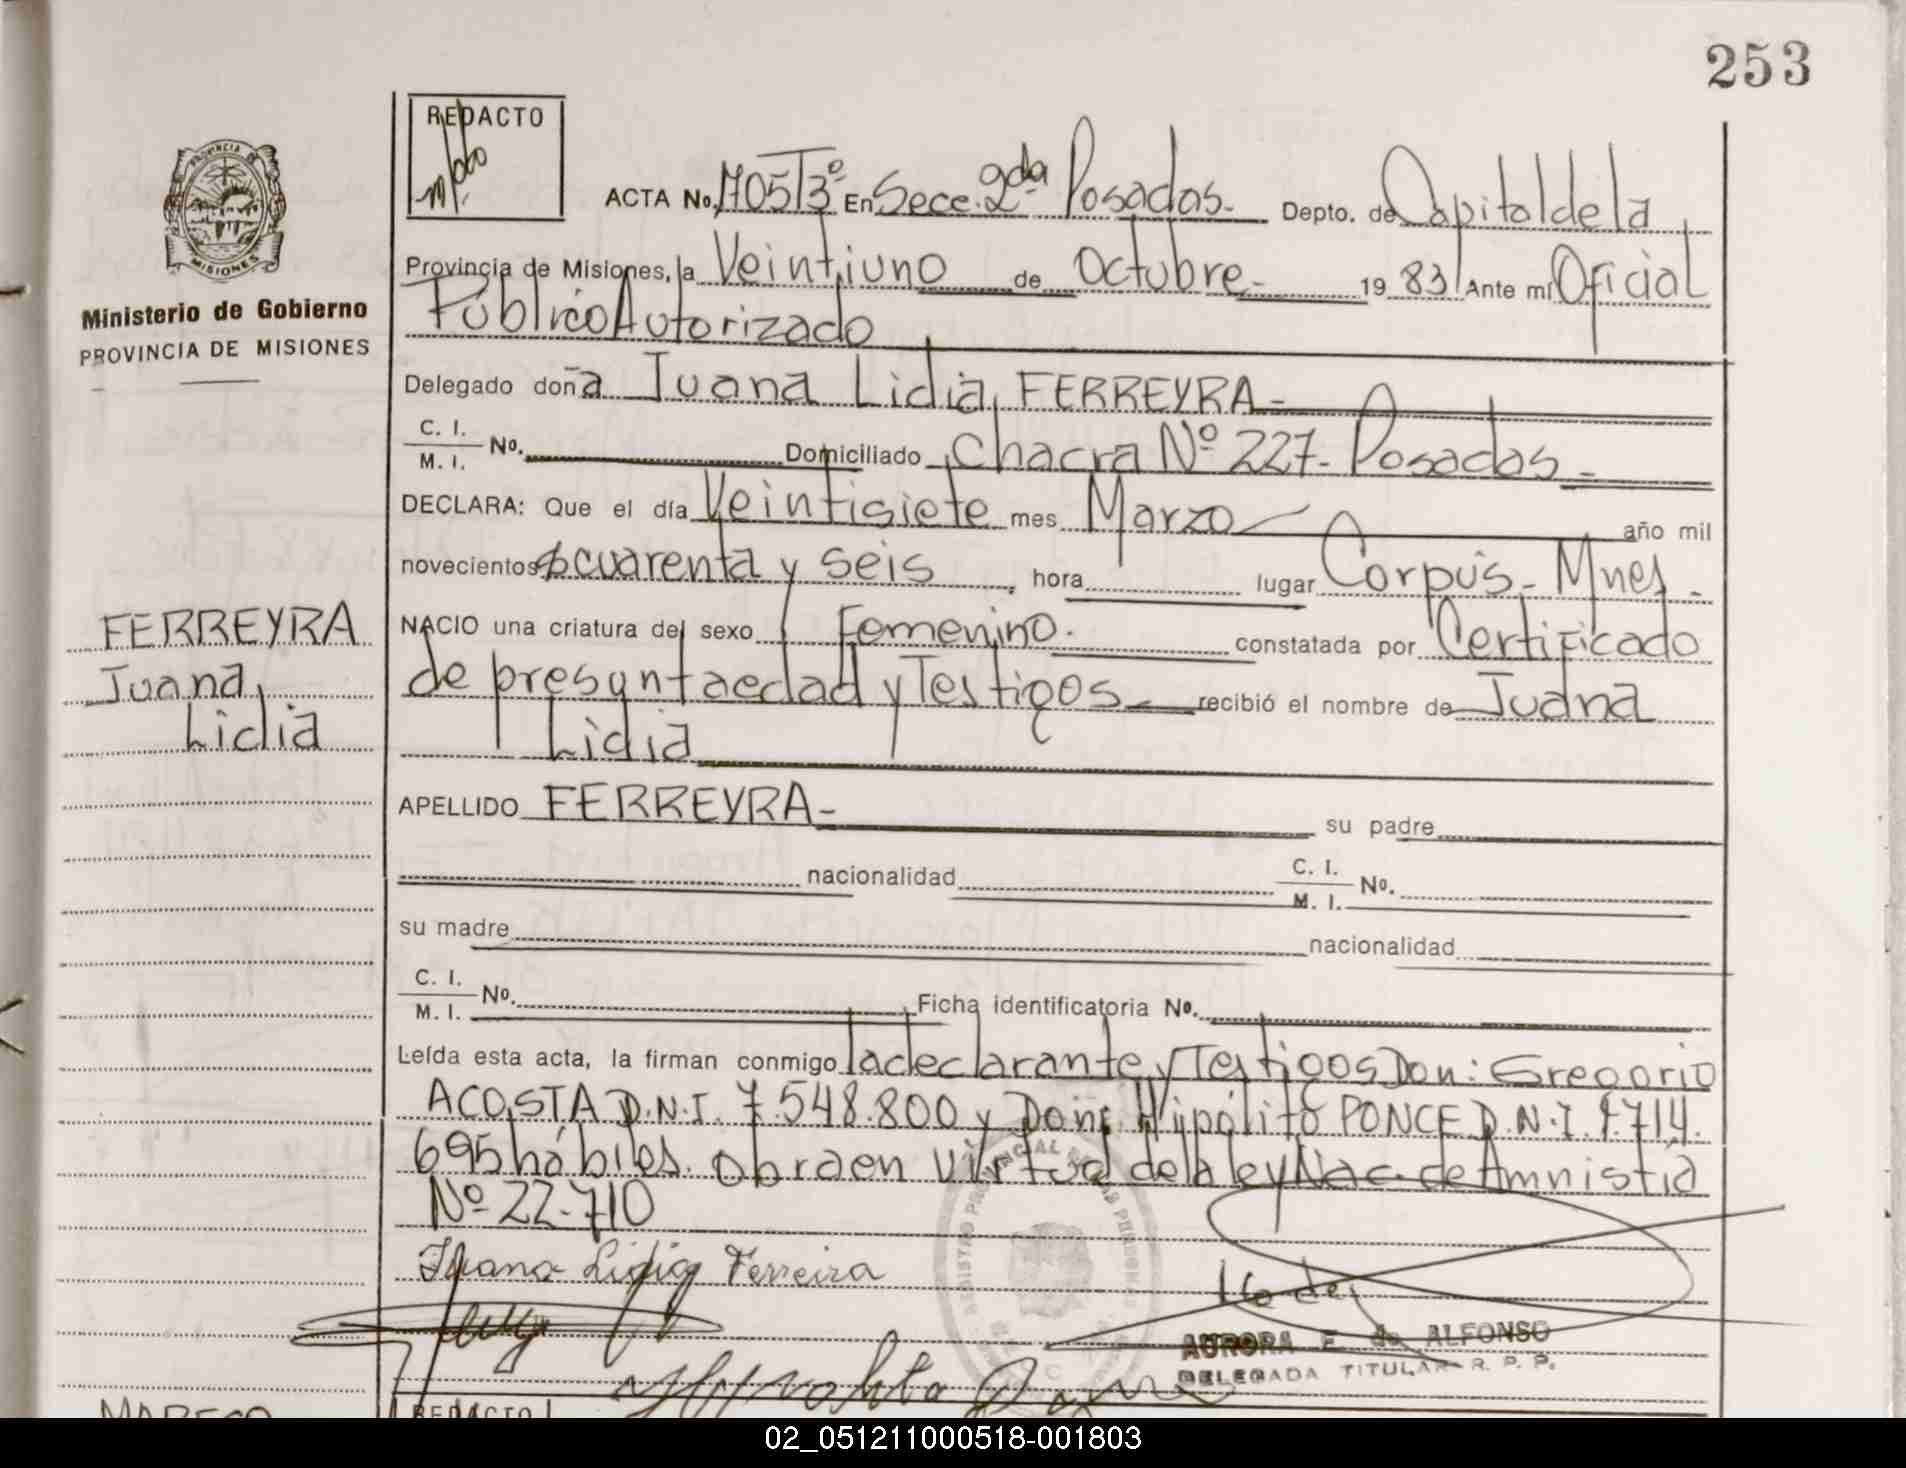 253
REDACTO
ACTA No. 1705 T 3º En Secc. 2da Posadas. Depto. de Capital de la
PROVINCIA DE
MISIONES
Provincia de Misiones, la Veintiuno de Octubre 1983 Ante mí Oficial
Público Autorizado
Ministerio de Gobierno
PROVINCIA DE MISIONES
Delegado doña Juana Lidia, FERREYRA-
C. I.
M. I. No. Domiciliado Chacra Nº 227- Posadas-
DECLARA: Que el día Veintisiete mes Marzo año mil
novecientos cuarenta y seis, hora lugar Corpus- Mnes.
FERREYRA
Juana,
Lidia
NACIO una criatura del sexo Femenino. constatada por Certificado
de presunta edad y Testigos recibió el nombre de Juana
Lidia
APELLIDO FERREYRA- su padre
nacionalidad C. I.
M. I. No.
su madre nacionalidad
C. I.
M. I. No. Ficha identificatoria No.
Leída esta acta, la firman conmigo la declarante y Testigos Don: Gregorio
ACOSTA D.N.I. 7.548.800 y Don: Hipólito PONCE D.N.I. 1.714.
695 hábiles. Obra en virtud de la ley Nac. de Amnistia
Nº 22.710
Juana Lidia Ferreira
AURORA E. de ALFONSO
DELEGADA TITULAR R. P. P.
REDACTO
02_051211000518-001803